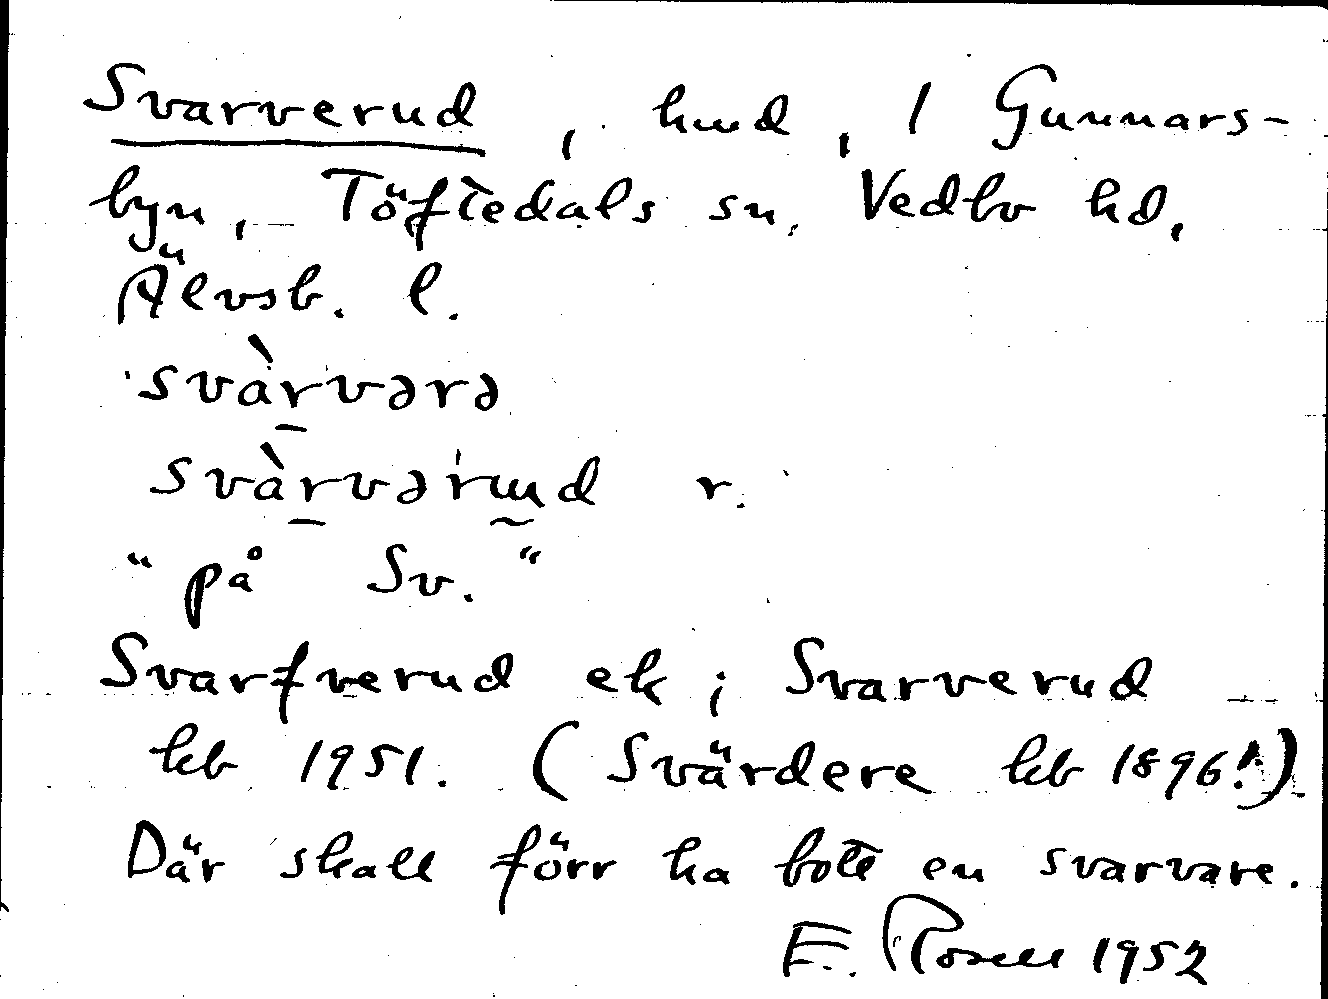 Svarverud, hmd, 1 Gunnars-
byn, Töftedals sn, Vedbo hd,
Älvsb. l.
svàrvərə
svàrvərɯd r.
"på Sv."
Svarfverud ek; Svarverud
kb 1951. (Svärdere kb 1896!)
Där skall förr ha bott en svarvare.
E. Rosell 1952